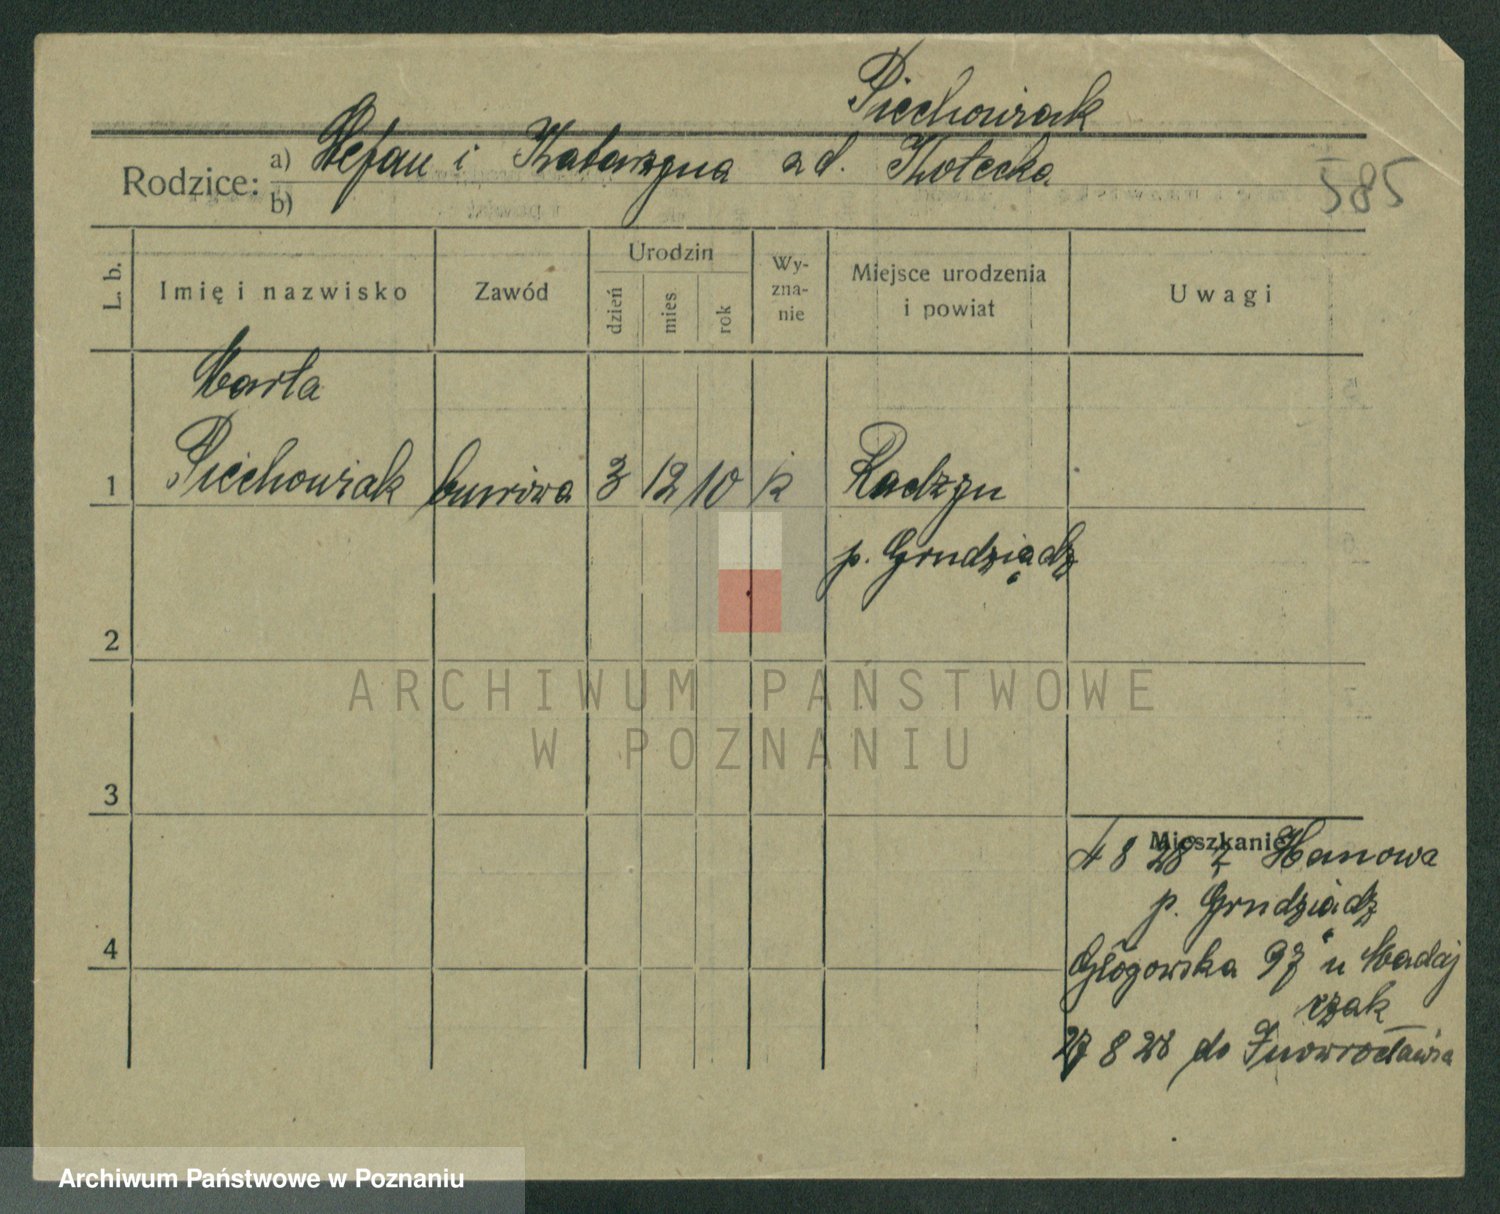 Piechowiak
Rodzice: a) Stefan i Katarzyna zd. Kołecka
b)
585
L. b.
Imię i nazwisko
Zawód
Urodzin
dzień
mies
rok
Wy-
zna-
nie
Miejsce urodzenia
i powiat
Uwagi
Marta
1 Piechowiak 3 12 10 k Radzyn
p. Grudziądz
2
ARCHIWUM PAŃSTWOWE
W POZNANIU
3
Mieszkanie
4 8 28 z Hanowa
p. Grudziądz
4
Głogowska 97 u Madaj
czak
27 8 28 do Inowrocławia
Archiwum Państwowe w Poznaniu